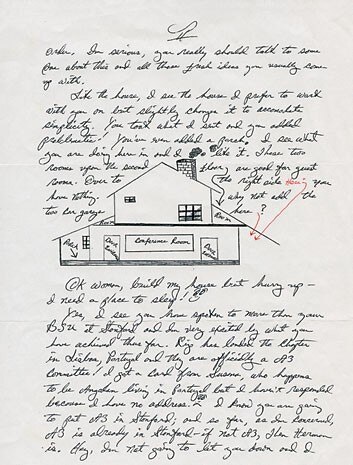 order. I'm serious, you really should talk to some
one about this and all those fresh ideas you usually come
up with.
Like the house, I see the house I prefer to work
with you on but slightly change it to accomodate
simplicity! You took what I sent and you added
You've even added a garage. I see what
you are doing here in and I like it. These two
rooms upon the second floor, are good for guest
room. Over to the right side you
have nothing. Why not add the
two car garage here?
Room
Room
Patio
Door
Conference Room
Door
OK woman, build my house but hurry up -
I need a place to sleep!
Yes, I see you have spoken to more than your
BSU at Stanford and I'm very excited by what you
have achieved thus far. King has landed the Chapter
in Lisboa, Portugal and they are officially a A3
Committee! I got a card from who happens
to be Angolan living in Portugal but I haven't responded
because I have no address. I know you are going
to put A3 in Stanford; and so far, as I'm concerned,
A3 is already in Stanford - if not A3, then Herman
is. Hey, I'm not going to let you down and I